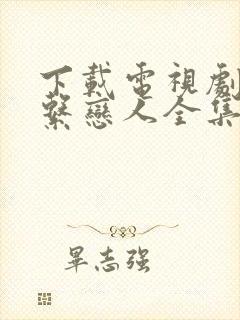 下載電視劇
繫戀人全集
畢志强